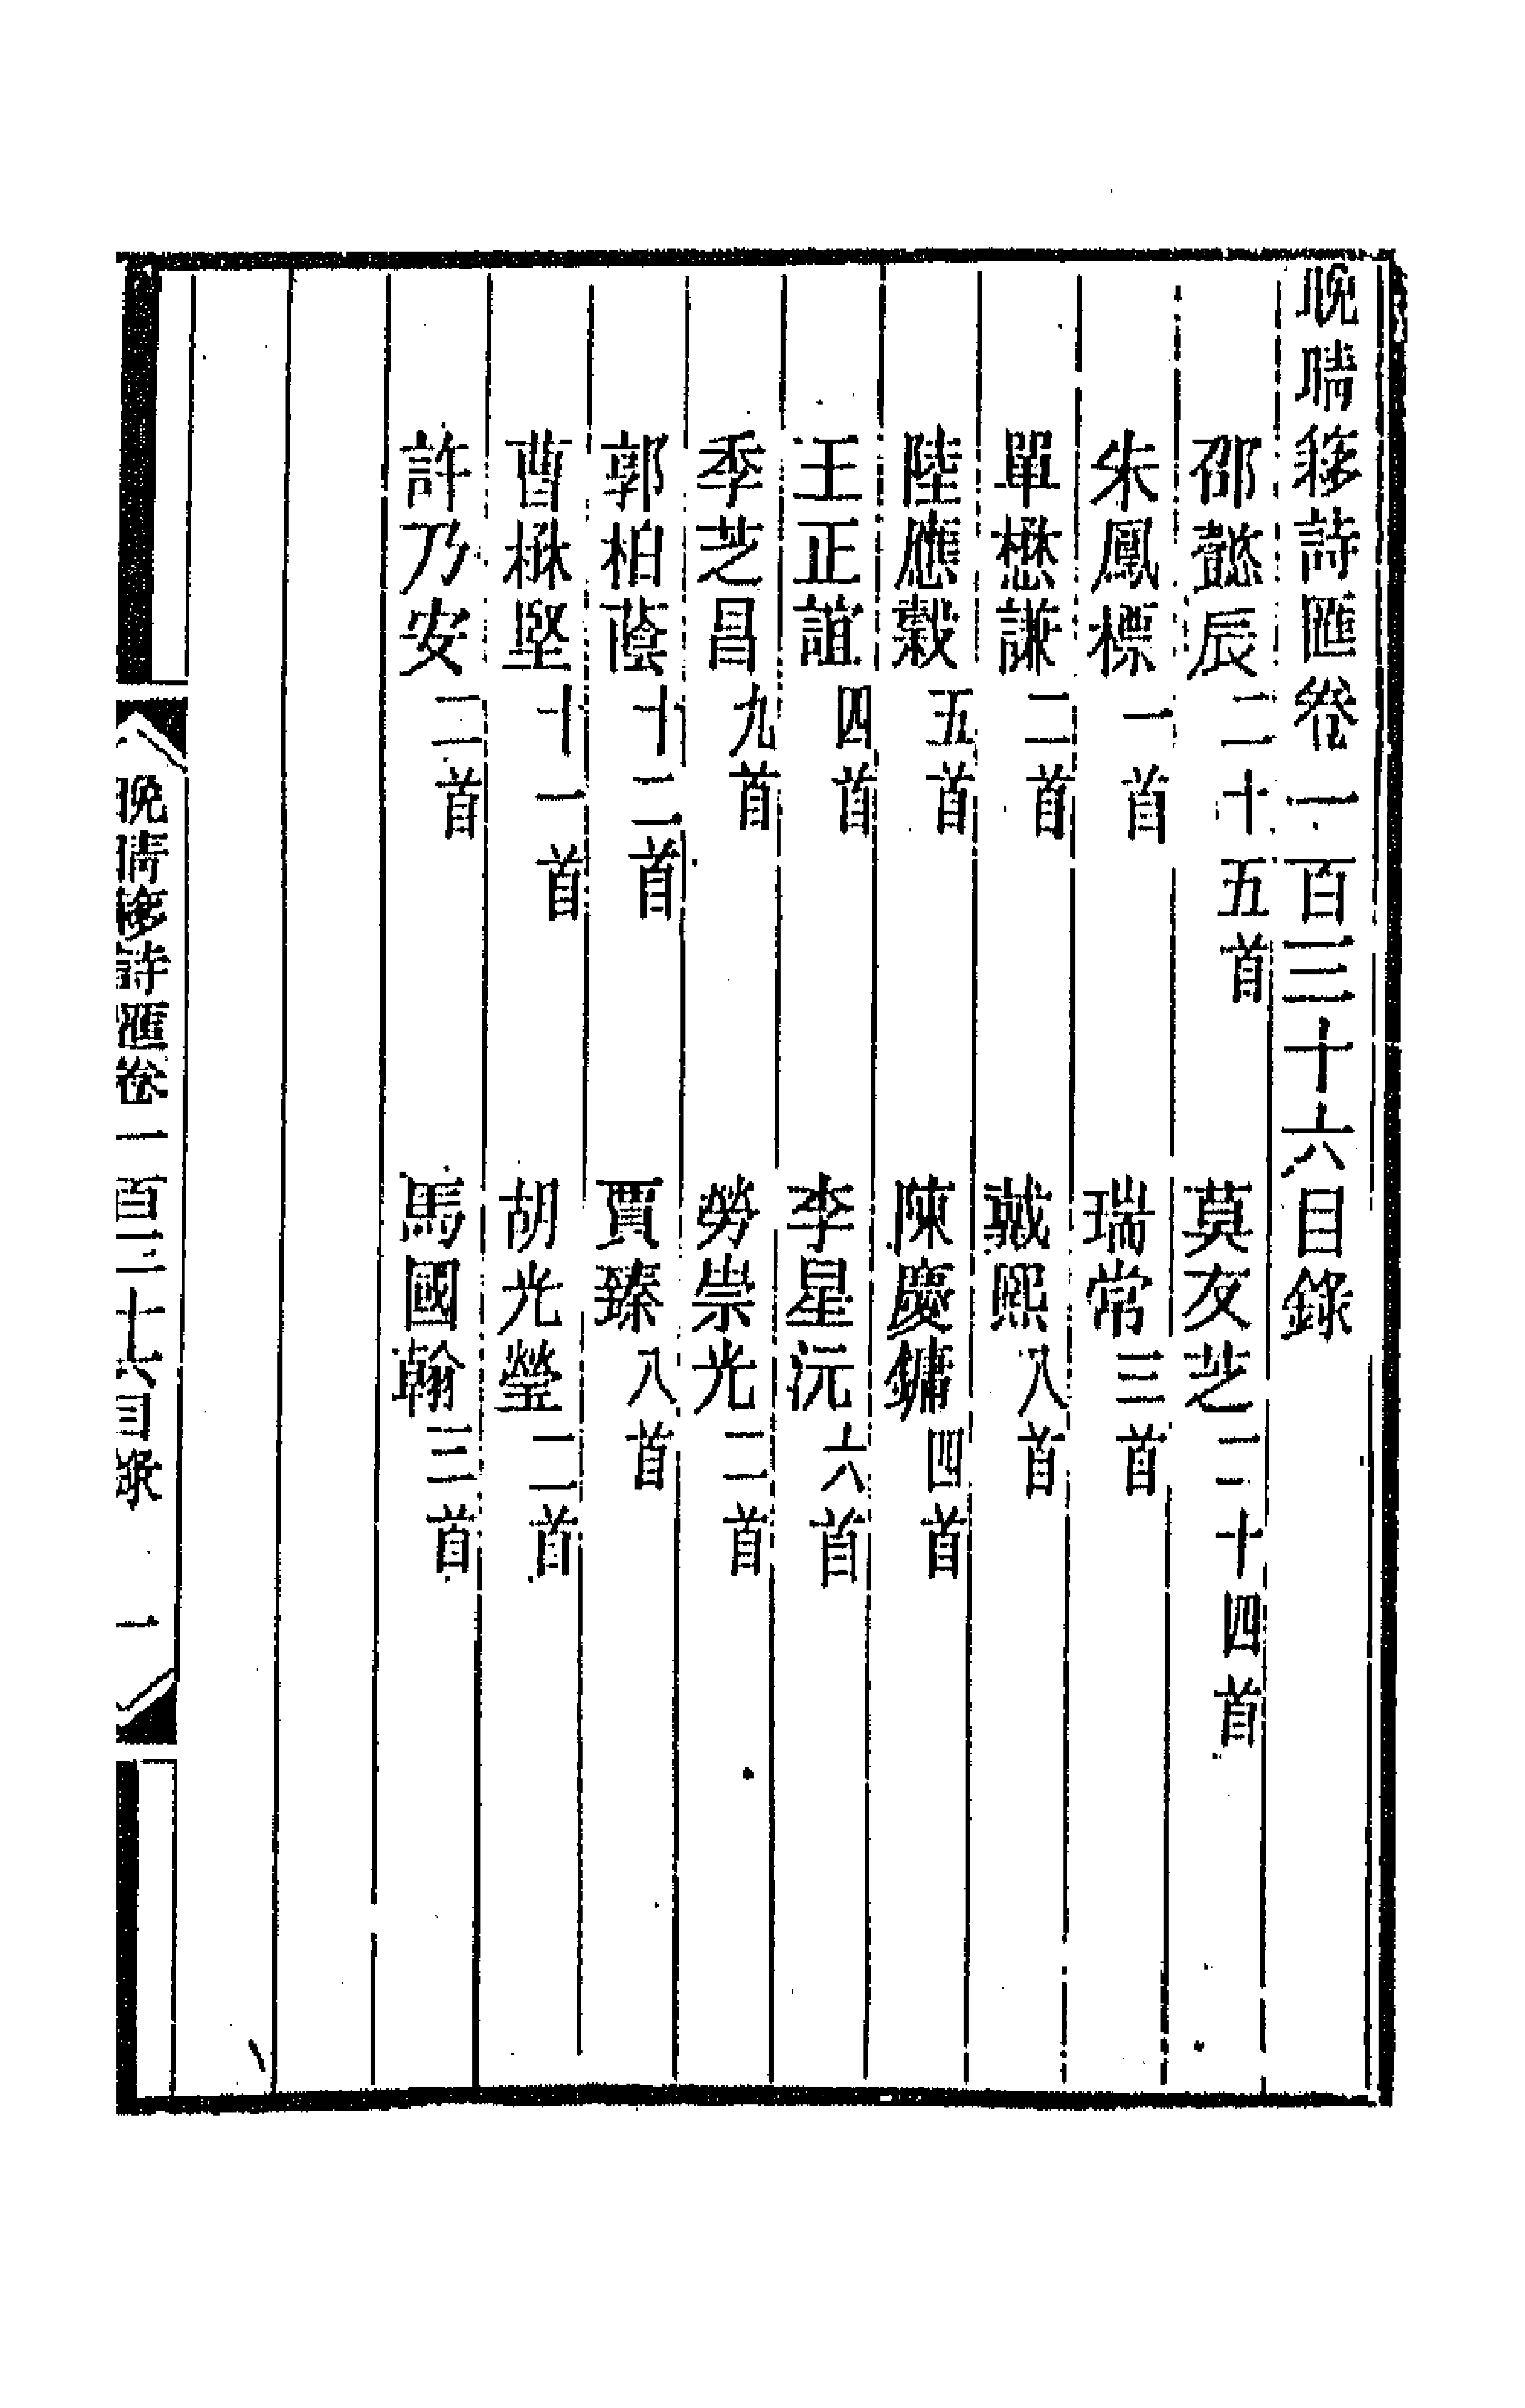 晚晴簃詩匯卷一百三十六目錄
邵懿辰二十五首　莫友芝二十四首
朱鳳標一首　瑞常三首
單懋謙二首　戴熙八首
陸應穀五首　陳慶鏞四首
王正誼四首　李星沅六首
季芝昌九首　勞崇光二首
郭柏蔭十二首　賈臻八首
曹楙堅十一首　胡光瑩二首
許乃安二首　馬國翰三首
晚晴簃詩匯卷一百三十六目錄　一